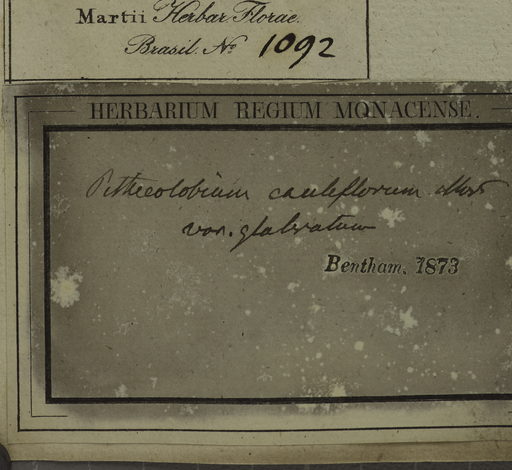 Martii Herbar. Florae
Brasil. No 1092
HERBARIUM REGIUM MONACENSE.
Pithecolobium cauliflorum Mart
var. glabratum
Bentham. 1873